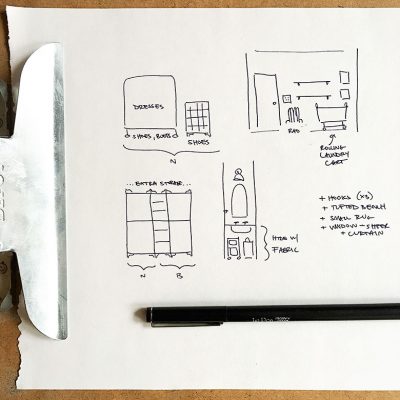 DRESSES
SHOES, BOOTS
SHOES
N
RAD
ROLLING
LAUNDRY
CART
...EXTRA STORAGE...
N
B
HIDE W/
FABRIC
+ HOOKS (x3)
+ TUFTED BENCH
+ SMALL RUG
+ WINDOW - SHEER
+ CURTAIN